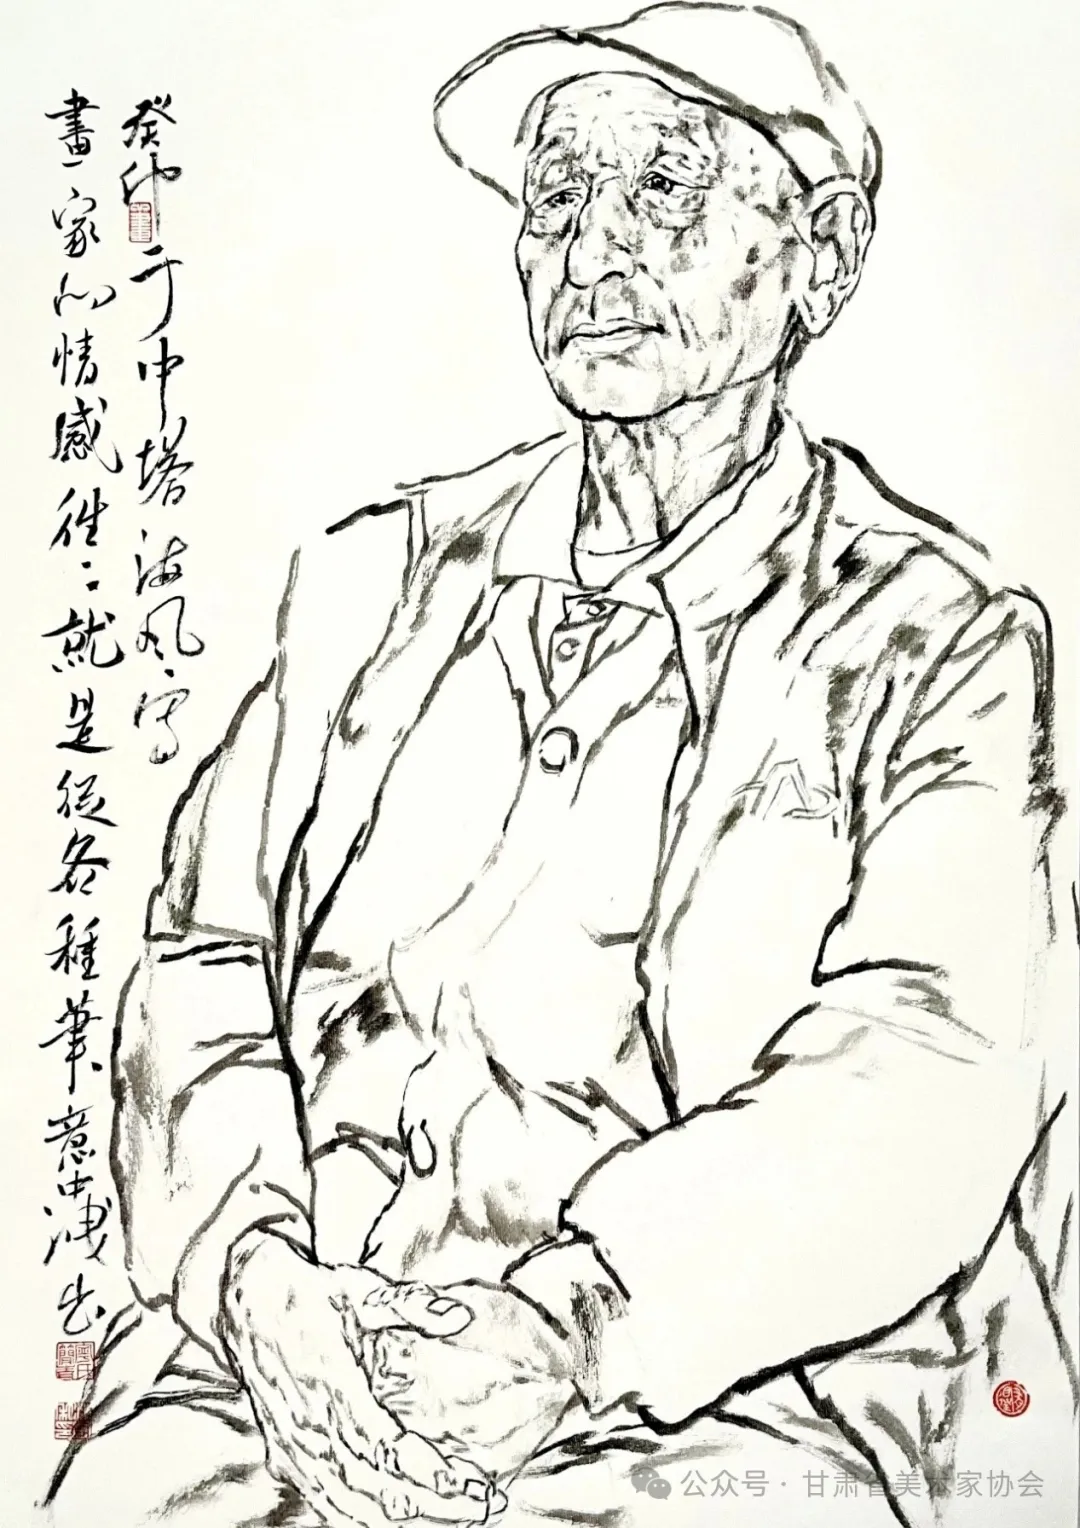 畫家的情感往〻就是從各種筆意中洩出
癸卯于中塔海风写
公众号 · 甘肃省美术家协会